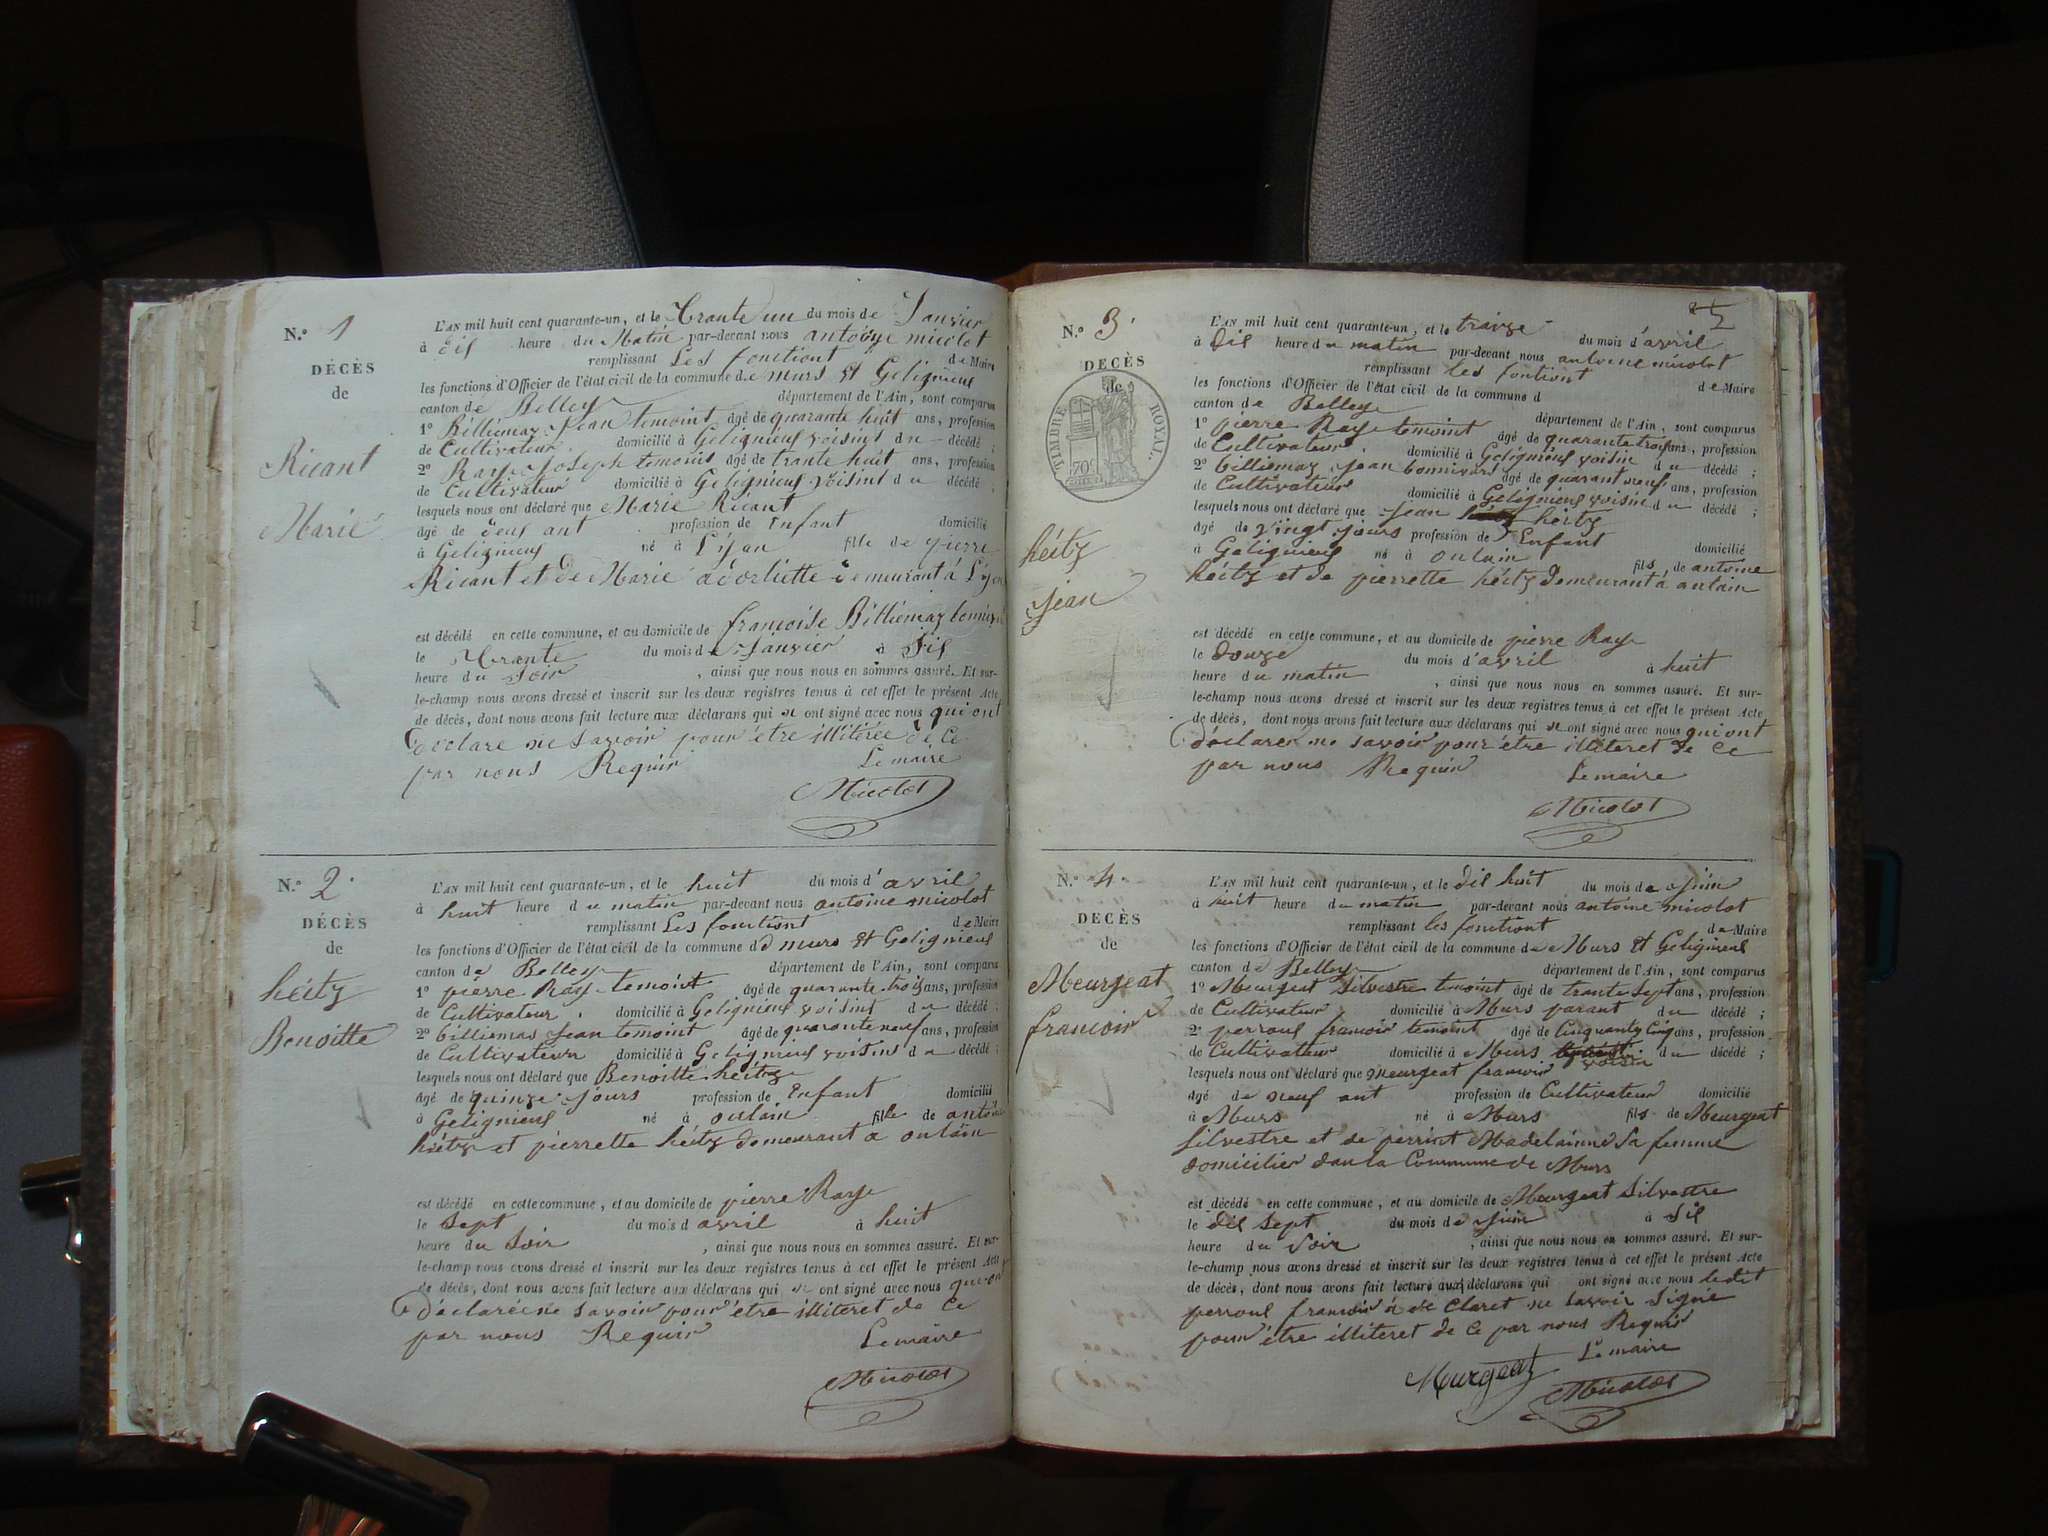 N.o 1
DÉCÈS
de
Ricant
Marie
L'AN mil huit cent quarante-un, et le Trante un du mois de Janvier
à dis heure du Matin par-devant nous antoine micolot
remplissant Les fonctiont de Maire
les fonctions d'Officier de l'état civil de la commune de murs et Gelignieus
canton de Belley département de l'Ain, sont comparus
1o Billiemaz Jean temoint âgé de quarante huit ans, profession
de Cultivateur domicilié à Gelignieus voisint du décédé ;
2o Raye Joseph temoins âgé de trante huit ans, profession
de Cultivateur domicilié à Gelignieus voisint du décédé ;
lesquels nous ont déclaré que Marie Ricant
âgé de deus ant profession de Enfant domicilié
à Gelignieus né à Liyon fille de pierre
Ricant et de Marie demeurant à
est décédé en cette commune, et au domicile de francoise Billiemaz
le Trante du mois de Janvier à dis
heure du Soir , ainsi que nous nous en sommes assuré. Et sur-
le-champ nous avons dressé et inscrit sur les deux registres tenus à cet effet le présent Acte
de décès, dont nous avons fait lecture aux déclarans qui n ont signé avec nous qui ont
déclare ne savoir pour être illiterée de Ce
par nous Requir Le maire
Micolot
N.o 2
DÉCÈS
de
héitz
Benoitte
L'AN mil huit cent quarante-un, et le huit du mois d'avril
à huit heure du matin par-devant nous antoine micolot
remplissant Les fonctiont de Maire
les fonctions d'Officier de l'état civil de la commune d murs et Gelignieus
canton de Belley département de l'Ain, sont comparus
1o pierre Raye temoint âgé de quarante trois ans, profession
de Cultivateur domicilié à Gelignieus voisint du décédé ;
2o billiemas Jean temoint âgé de quarante neuf ans, profession
de Cultivateur domicilié à Gelignieus voisins du décédé ;
lesquels nous ont déclaré que Benoitte héitz
âgé de quinze jours profession de Enfant domicilié
à Gelignieus né à oulain fille de antoine
héitz et pierrette héitz demeurant a oulain
est décédé en cette commune, et au domicile de pierre Raye
le Sept du mois d avril à huit
heure du Soir , ainsi que nous nous en sommes assuré. Et sur-
le-champ nous avons dressé et inscrit sur les deux registres tenus à cet effet le présent Acte
de décès, dont nous avons fait lecture aux déclarans qui n ont signé avec nous qui ont
déclarée ne savoir pour être illiteret de Ce
par nous Requir Le maire
Micolot
N.o 3
DÉCÈS
de
TIMBRE ROYAL
70c
héitz
Jean
L'AN mil huit cent quarante-un, et le traize du mois d'avril
à dis heure du matin par-devant nous antoine micolot
remplissant les fontiont de Maire
les fonctions d'Officier de l'état civil de la commune d
canton de Belley département de l'Ain, sont comparus
1o pierre Raye temoint âgé de quarante trois ans, profession
de Cultivateur domicilié à Gelignieus voisin du décédé ;
2o billiemaz Jean bonnivard âgé de quarant neuf ans, profession
de Cultivateur domicilié à Gelignieus voisin du décédé ;
lesquels nous ont déclaré que Jean heitz
âgé de vingt jours profession de Enfant domicilié
à Gelignieus né à oulain fils de antoine
héitz et de pierrette héitz demeurant a oulain
est décédé en cette commune, et au domicile de pierre Raye
le douze du mois d'avril à huit
heure du matin , ainsi que nous nous en sommes assuré. Et sur-
le-champ nous avons dressé et inscrit sur les deux registres tenus à cet effet le présent Acte
de décès, dont nous avons fait lecture aux déclarans qui n ont signé avec nous qui ont
déclarer ne savoir pour être illiteret de Ce
par nous Requir Le maire
Micolot
N.o 4
DÉCÈS
de
Meurgeat
francoir
L'AN mil huit cent quarante-un, et le dis huit du mois de Juin
à huit heure du matin par-devant nous antoine micolot
remplissant les fonctiont de Maire
les fonctions d'Officier de l'état civil de la commune de Murs et Gelignieus
canton de Belley département de l'Ain, sont comparus
1o Meurgeat Silvestre temoint âgé de trante sept ans, profession
de Cultivateur domicilié à Murs parant du décédé ;
2o perroul francoir temoint âgé de Cinquante Cinq ans, profession
de Cultivateur domicilié à Murs voisin du décédé ;
lesquels nous ont déclaré que meurgeat francoir
âgé de neuf ant profession de Cultivateur domicilié
à Murs né à Murs fils de Meurgeat
Silvestre et de perrint Madelainne Sa femme
domicilier dan la Commune de Murs
est décédé en cette commune, et au domicile de Meurgeat Silvestre
le dis sept du mois de Juin à dis
heure du Soir , ainsi que nous nous en sommes assuré. Et sur-
le-champ nous avons dressé et inscrit sur les deux registres tenus à cet effet le présent Acte
de décès, dont nous avons fait lecture aux déclarans qui ont signé avec nous ledit
perroul francoir a de Claret ne savoir Signe
pour être illiteret de Ce par nous Requir
Le maire
Murgeat Micolot